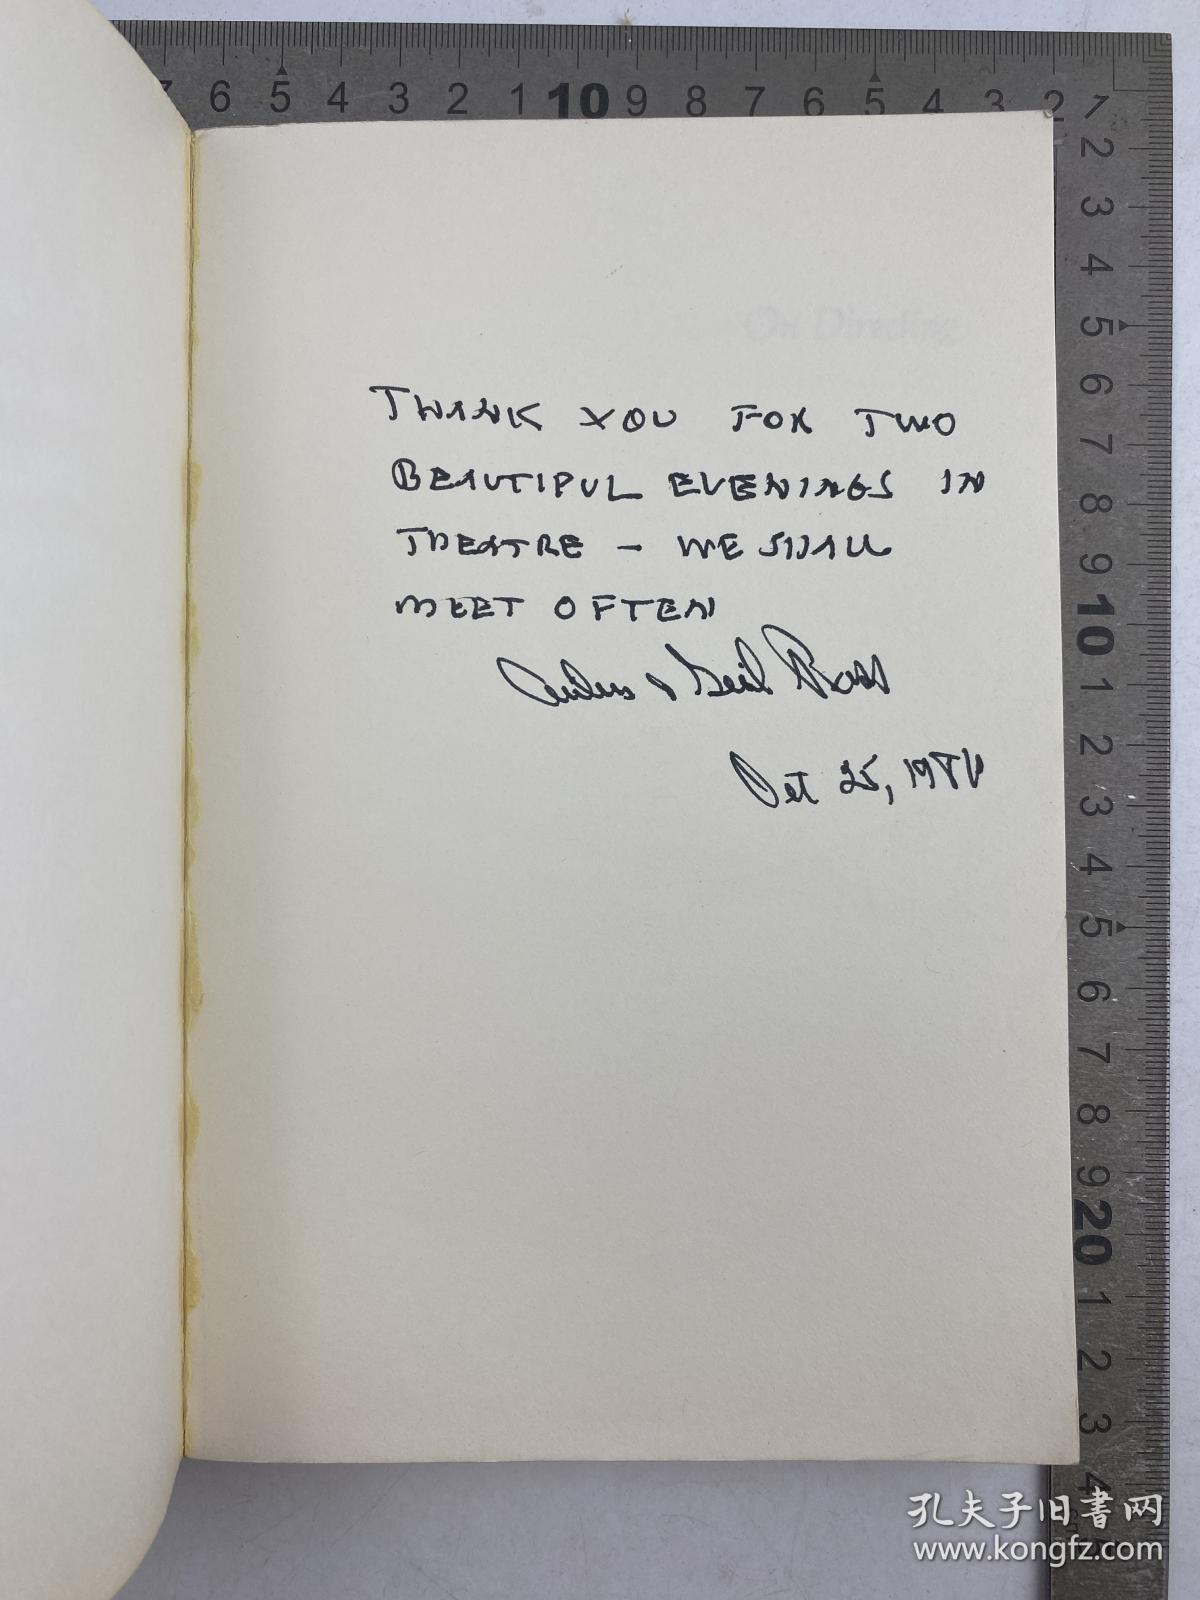 6 5 4 3 2 1 10 9 8 7 6 5 4 3 2 1
2 3 4 5 6 7 8 9 10 1 2 3 4 5 6 7 8 9 20 1 2 3 4
On Directing
THANK YOU FOR TWO
BEAUTIFUL EVENINGS IN
THEATRE – WE SHALL
MEET OFTEN
Oct 25, 19
孔夫子旧书网
www.kongfz.com